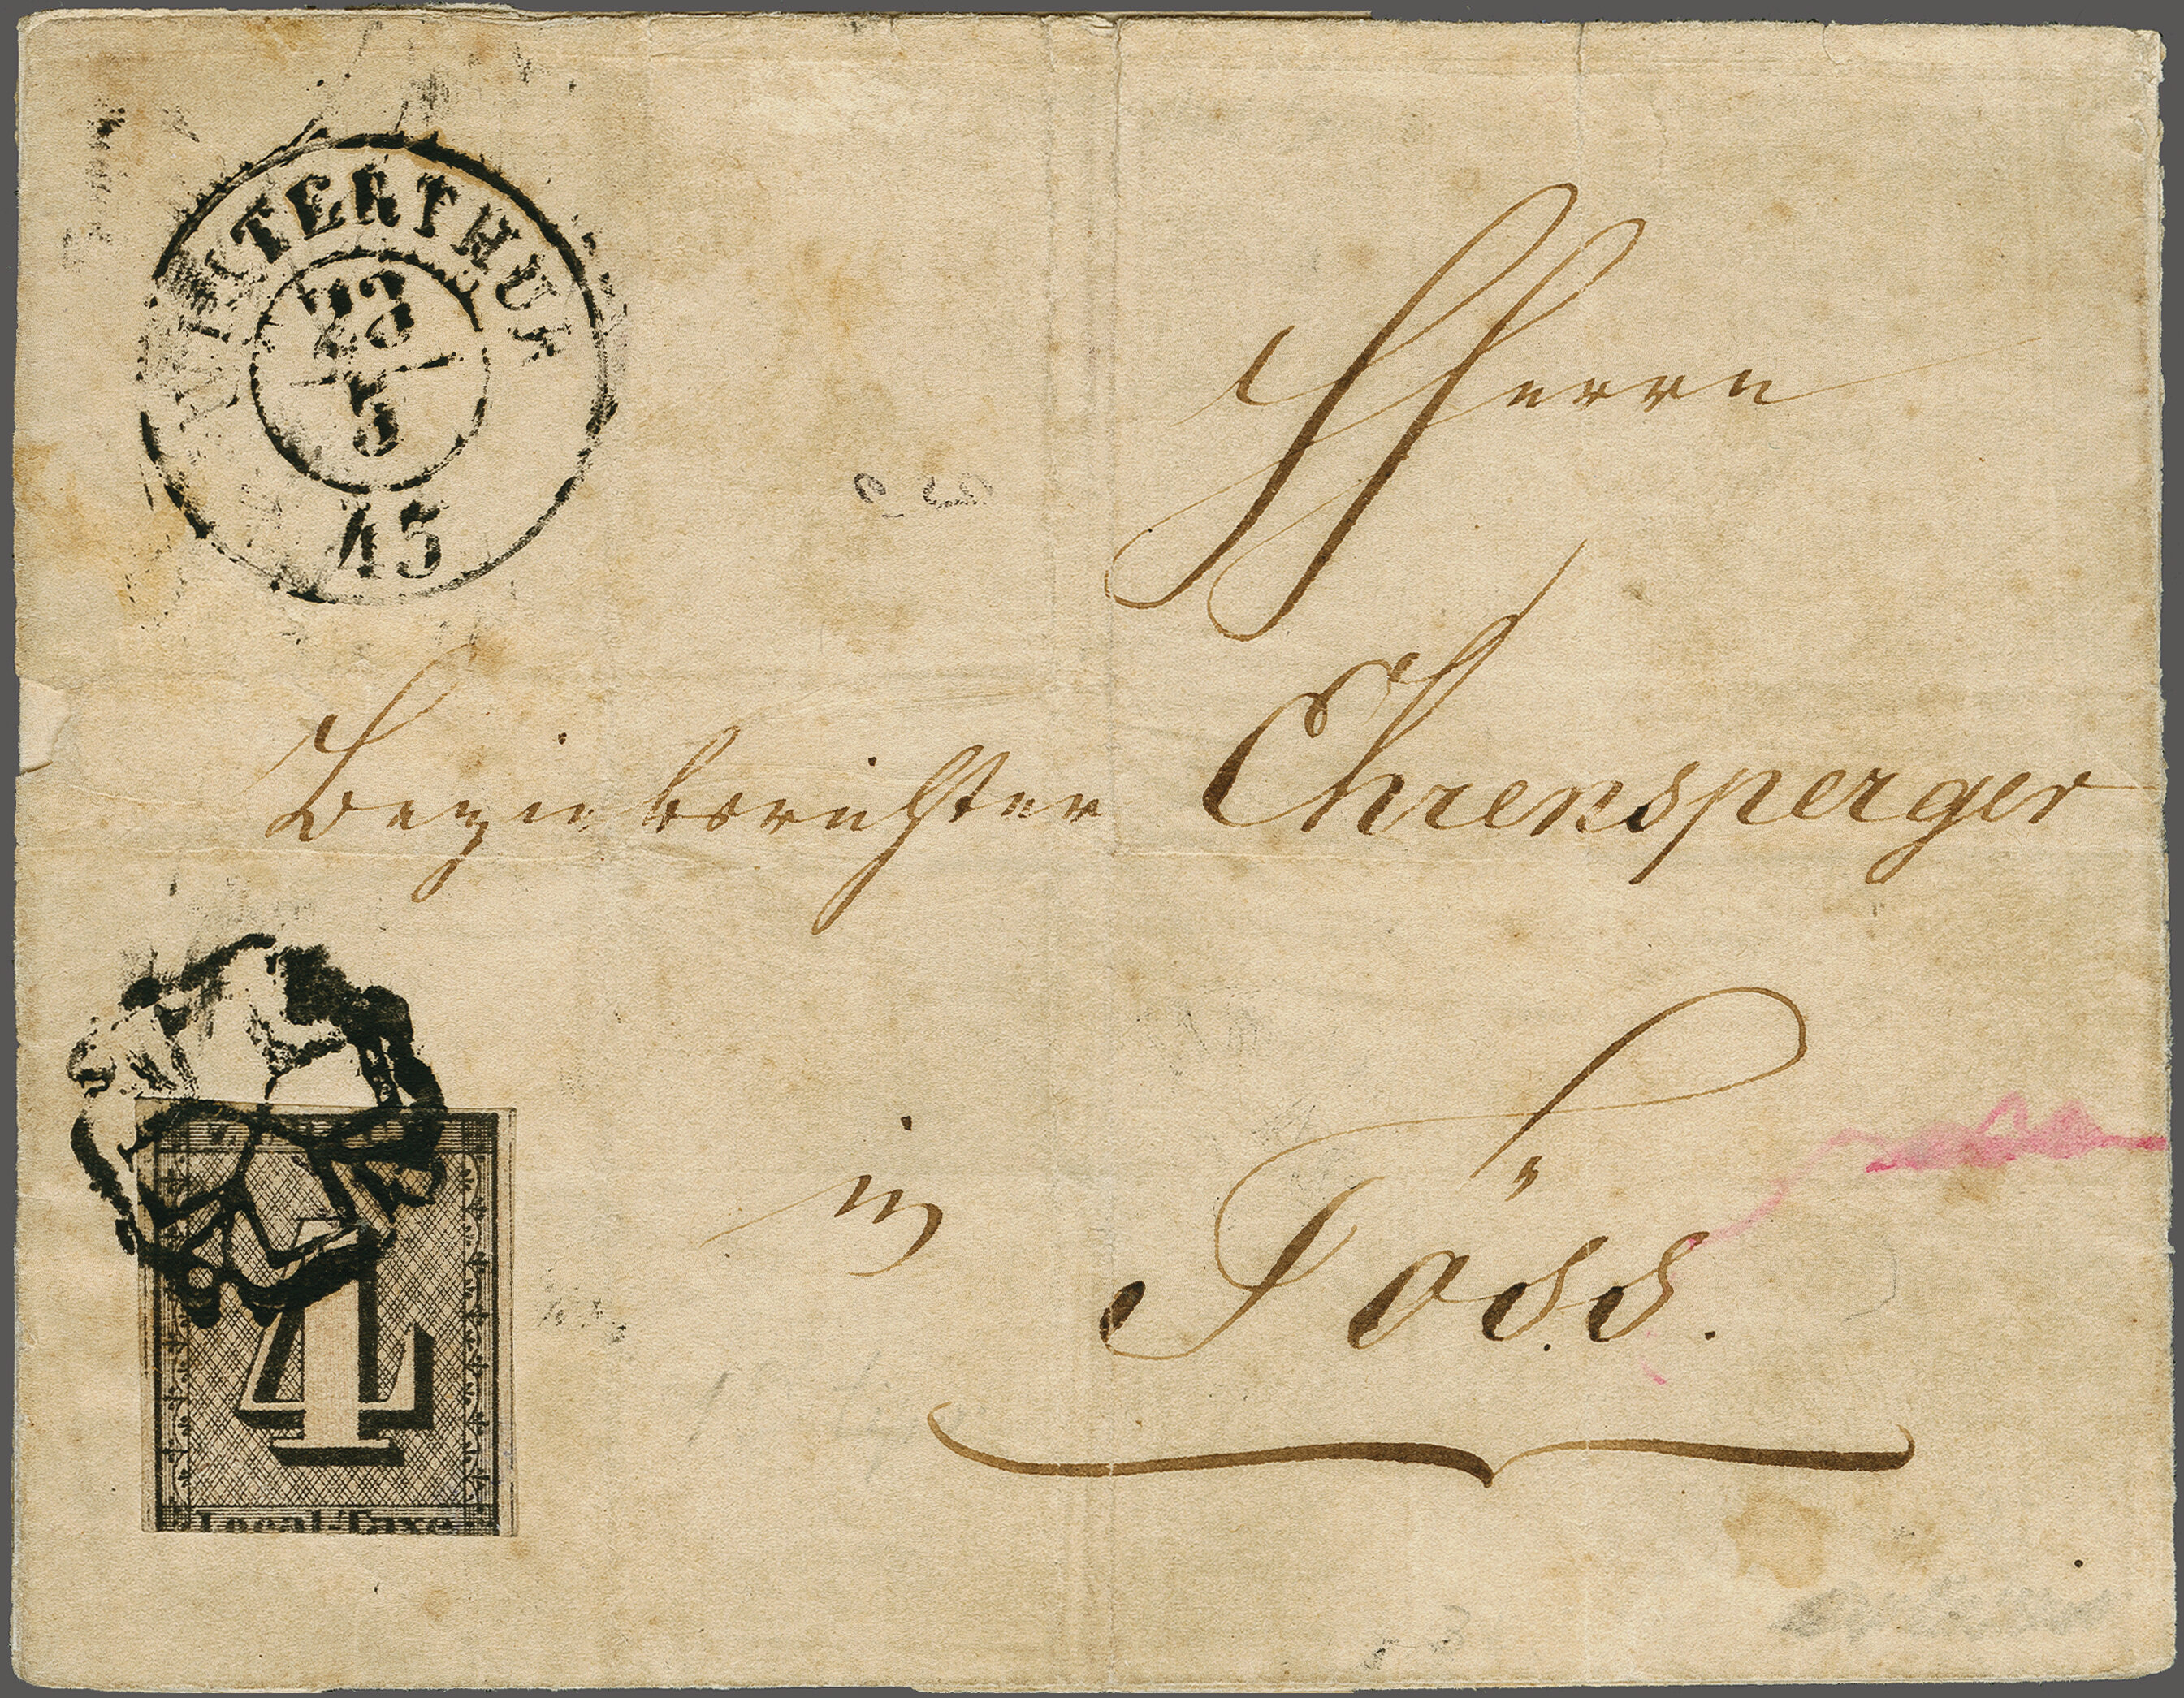 WINTERTHUR
23
5
45
Herrn
Bezirksrichter Ehrensperger
in Töss.
4
Local-Taxe